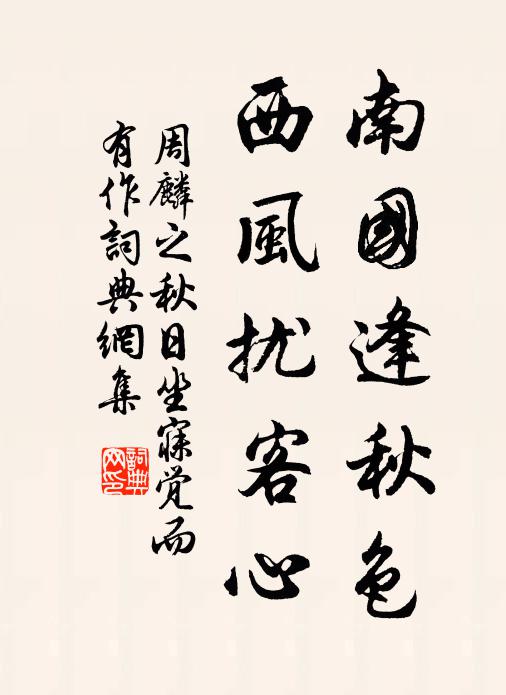 南國逢秋色
西風扰客心
周麟之秋日坐寐覚而
有作詞典網集
詞典
网印